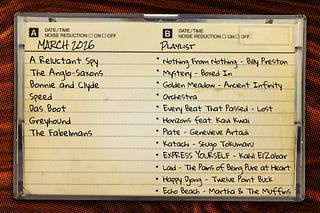 A DATE/TIME
NOISE REDUCTION ☐ ON ☐ OFF
MARCH 2026
A Reluctant Spy
The Anglo-Saxons
Bonnie and Clyde
Speed
Das Boot
Greyhound
The Fabelmans
B DATE/TIME
NOISE REDUCTION ☐ ON ☐ OFF
PLAYLIST
* Nothing From Nothing - Billy Preston
* Mystery - Boxed In
* Golden Meadow - Ancient Infinity
* Orchestra
* Every Beat That Passed - Lost
* Horizons feat. Kavi Kwai
* Plate - Genevieve Artadi
* Katachi - Shugo Tokumaru
* EXPRESS YOURSELF - Kahil ElZabar
* Laid - The Pains of Being Pure at Heart
* Happy Djong - Twelve Point Buck
* Echo Beach - Martha & The Muffins